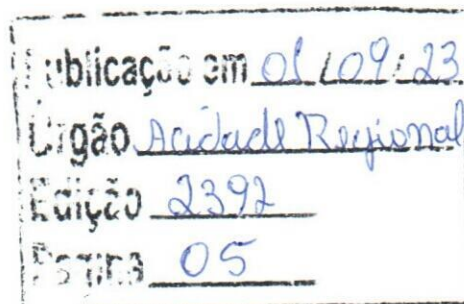 Publicação em 01/09/23
Órgão Acidade Regional
Edição 2392
Página 05